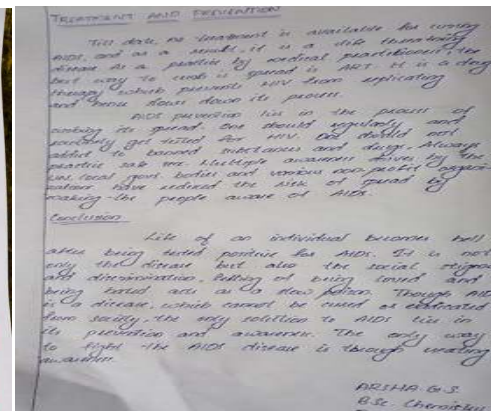 TREATMENT AND PREVENTION
Till date, no treatment is available for curing
AIDS, and as a result, it is a life threatening
disease. As a practice by medical practitioners, the
best way to curb its spread is ART. It is a drug
therapy which prevents HIV from replicating
and hence slows down its process.
AIDS prevention lies in the process of
curbing its spread. One should regularly and
routinely get tested for HIV. One should not
addict to banned substances and drugs. Always
practice safe sex. Multiple awareness drives by the
UN, local govt. bodies and various non profit organi-
have reduced the risk of spread by
making the people aware of AIDS.
Conclusion
Life of an individual becomes hell
after being tested positive for AIDS. It is not
only the disease but also the social stigma
and discrimination, of being loved and
being hated acts as a slow poison. Though AIDS
is a disease, which cannot be cured or eradicated
from society, the only solution to AIDS lies in
its prevention and awareness. The only way
to fight the AIDS disease is through creating
awareness.
ARSHA G.S
BSc. Chemistry